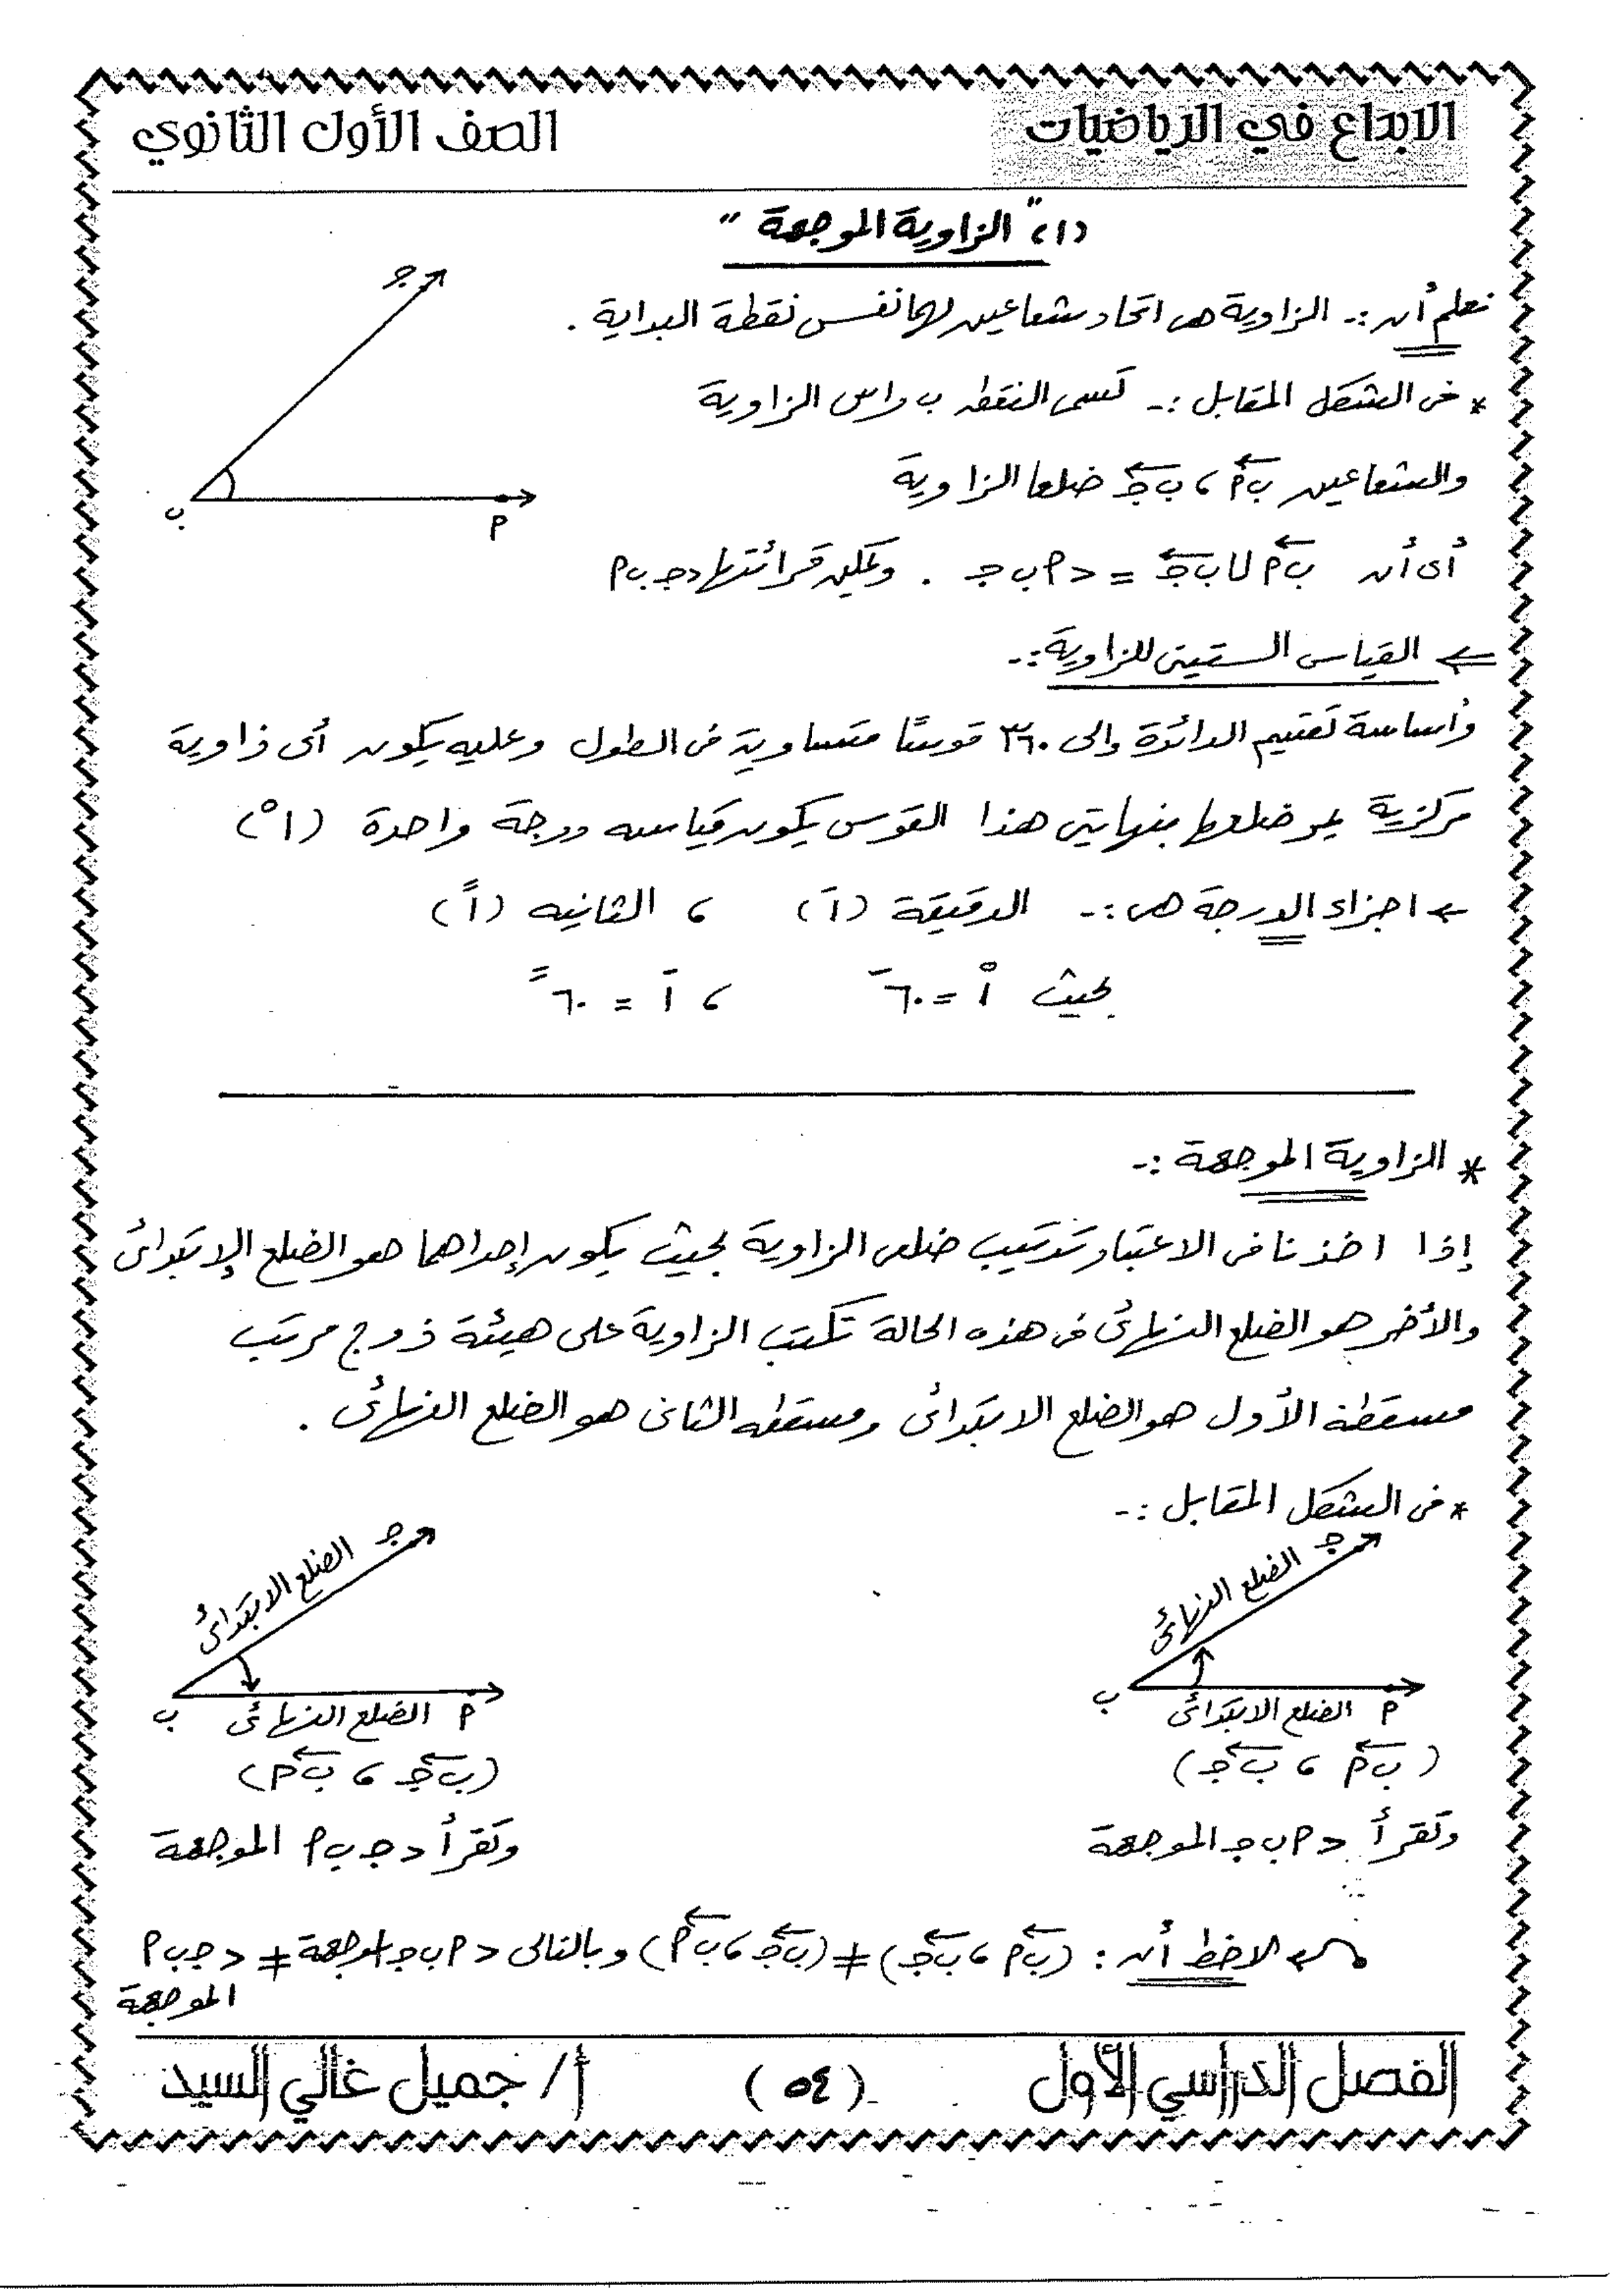 الابداع في الرياضيات
الصف الأول الثانوي
(١) " الزاوية الموجهة "
نعلم أن :- الزاوية هى اتحاد شعاعين لهما نفس نقطة البداية .
* فى الشكل المقابل :- تسمى النقطه ب رأس الزاوية
والشعاعين ب أ ، ب جـ ضلعا الزاوية
أى أن ب أ ∪ ب جـ = > أ ب جـ . ويمكن قرائتها > جـ ب أ
جـ
ب
أ
⇐ القياس الستينى للزاوية :-
وأساسة تقسيم الدائرة إلى ٣٦٠ قوسًا متساوية فى الطول وعليه يكون أى زاوية
مركزية يمر ضلعها بنهايتى هذا القوس يكون قياسه درجة واحدة (١°)
← اجزاء الدرجة هى :- الدقيقة (١َ) ، الثانيه (١ً)
بحيث ١° = ٦٠َ ، ١َ = ٦٠ً
* الزاوية الموجهة :-
إذا اخذنا فى الاعتبار ترتيب ضلعى الزاوية بحيث يكون إحداهما هو الضلع الإبتدائى
والأخر هو الضلع النهائى فى هذه الحالة تكتب الزاوية على هيئة زوج مرتب
مسقطة الأول هو الضلع الابتدائى ومسقطه الثانى هو الضلع النهائى .
* فى الشكل المقابل :-
جـ
الضلع النهائى
ب
أ
الضلع الابتدائى
(ب أ ، ب جـ)
وتقرأ > أ ب جـ الموجهة
جـ
الضلع الابتدائى
ب
أ
الضلع النهائى
(ب جـ ، ب أ)
وتقرأ > جـ ب أ الموجهة
لاحظ أن : (ب أ ، ب جـ) ≠ (ب جـ ، ب أ) وبالتالى > أ ب جـ الموجهة ≠ > جـ ب أ
الموجهة
الفصل الدراسي الأول
(٥٤)
أ/ جميل غالي السيد